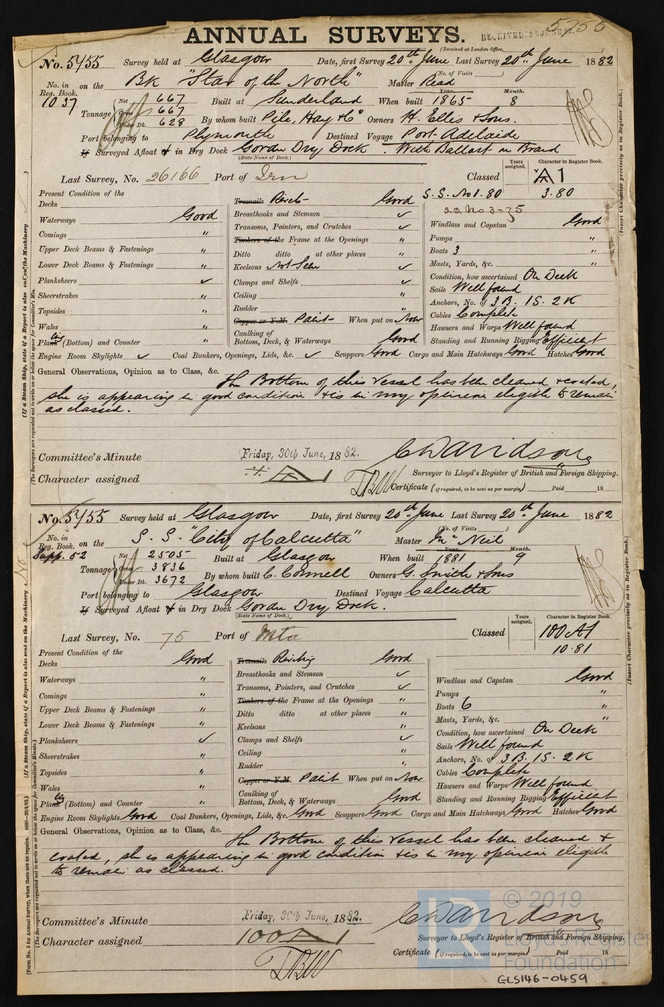 ANNUAL SURVEYS.
5755
(Received at London Office,
No. 5755 Survey held at Glasgow Date, first Survey 20th June Last Survey 20th June 1882
No. in Reg. Book. on the Bk "Star of the North" (No. of Visits) Master Read
1037 Net 667 Built at Sunderland When built Year. 1865 Month. 8
Tonnage Gross 667 By whom built Pile, Hay & Co Owners H. Ellis & Sons.
Under Dk. 628
Port belonging to Plymouth Destined Voyage Port Adelaide
If Surveyed Afloat or in Dry Dock Gordon Dry Dock. With Ballast on Board
(State Name of Dock.)
Years assigned. Character in Register Book.
Last Survey, No. 26166 Port of Classed A1
S.S. No 1. 80 3.80
Present Condition of the
Decks
Waterways Good
Comings "
Upper Deck Beams & Fastenings "
Lower Deck Beams & Fastenings "
Planksheers ✓
Sheerstrakes "
Topsides "
Wales "
Plank (Bottom) and Counter "
Transoms Good
Breasthooks and Stemson ✓
Transoms, Pointers, and Crutches ✓
Timbers of the Frame at the Openings "
Ditto ditto at other places "
Keelsons Not Seen ✓
Clamps and Shelfs ✓
Ceiling "
Rudder "
Copper or Y.M. Paint When put on Now
Caulking of Bottom, Deck, & Waterways Good
Windlass and Capstan Good
Pumps "
Boats 3 "
Masts, Yards, &c. "
Condition, how ascertained On Deck
Sails Well found
Anchors, No. of 3 B. 1 S. 2 K
Cables Complete
Hawsers and Warps Well found
Standing and Running Rigging Efficient
Engine Room Skylights ✓ Coal Bunkers, Openings, Lids, &c. ✓ Scuppers Good Cargo and Main Hatchways Good Hatches Good
General Observations, Opinion as to Class, &c.
The Bottom of this Vessel has been cleaned & coated,
she is appearing in good condition & is in my opinion eligible to remain
as classed.
Committee's Minute Friday, 30th June, 1882. C Davidson
Character assigned Surveyor to Lloyd's Register of British and Foreign Shipping.
Certificate (if required, to be sent as per margin) Paid 18
No. 5755 Survey held at Glasgow Date, first Survey 20th June Last Survey 20th June 1882
No. in Reg. Book. on the S.S. "City of Calcutta" (No. of Visits) Master McNeil
Supp. 52 Net 2505 Built at Glasgow When built Year. 1881 Month. 9
Tonnage Gross 3836 By whom built C. Connell Owners G. Smith & Sons
Under Dk. 3672
Port belonging to Glasgow Destined Voyage Calcutta
If Surveyed Afloat or in Dry Dock Gordon Dry Dock.
(State Name of Dock.)
Years assigned. Character in Register Book.
Last Survey, No. 75 Port of Classed 100 A1
10.81
Present Condition of the
Decks Good
Waterways "
Comings "
Upper Deck Beams & Fastenings "
Lower Deck Beams & Fastenings "
Planksheers ✓
Sheerstrakes "
Topsides "
Wales "
Plank (Bottom) and Counter "
Transoms Good
Breasthooks and Stemson "
Transoms, Pointers, and Crutches ✓
Timbers of the Frame at the Openings "
Ditto ditto at other places "
Keelsons "
Clamps and Shelfs ✓
Ceiling "
Rudder "
Copper or Y.M. Paint When put on Now
Caulking of Bottom, Deck, & Waterways Good
Windlass and Capstan Good
Pumps "
Boats 6 "
Masts, Yards, &c. "
Condition, how ascertained On Deck
Sails Well found
Anchors, No. of 3 B. 1 S. 2 K
Cables Complete
Hawsers and Warps Well found
Standing and Running Rigging Efficient
Engine Room Skylights Good Coal Bunkers, Openings, Lids, &c. Good Scuppers Good Cargo and Main Hatchways Good Hatches Good
General Observations, Opinion as to Class, &c.
The Bottom of this Vessel has been cleaned &
coated, she is appearing in good condition & is in my opinion eligible
to remain as classed.
© 2019
Lloyd's Register
Foundation
Committee's Minute Friday, 30th June, 1882. C Davidson
Character assigned 100A1 Surveyor to Lloyd's Register of British and Foreign Shipping.
Certificate (if required, to be sent as per margin) Paid 18
GLS146-0459